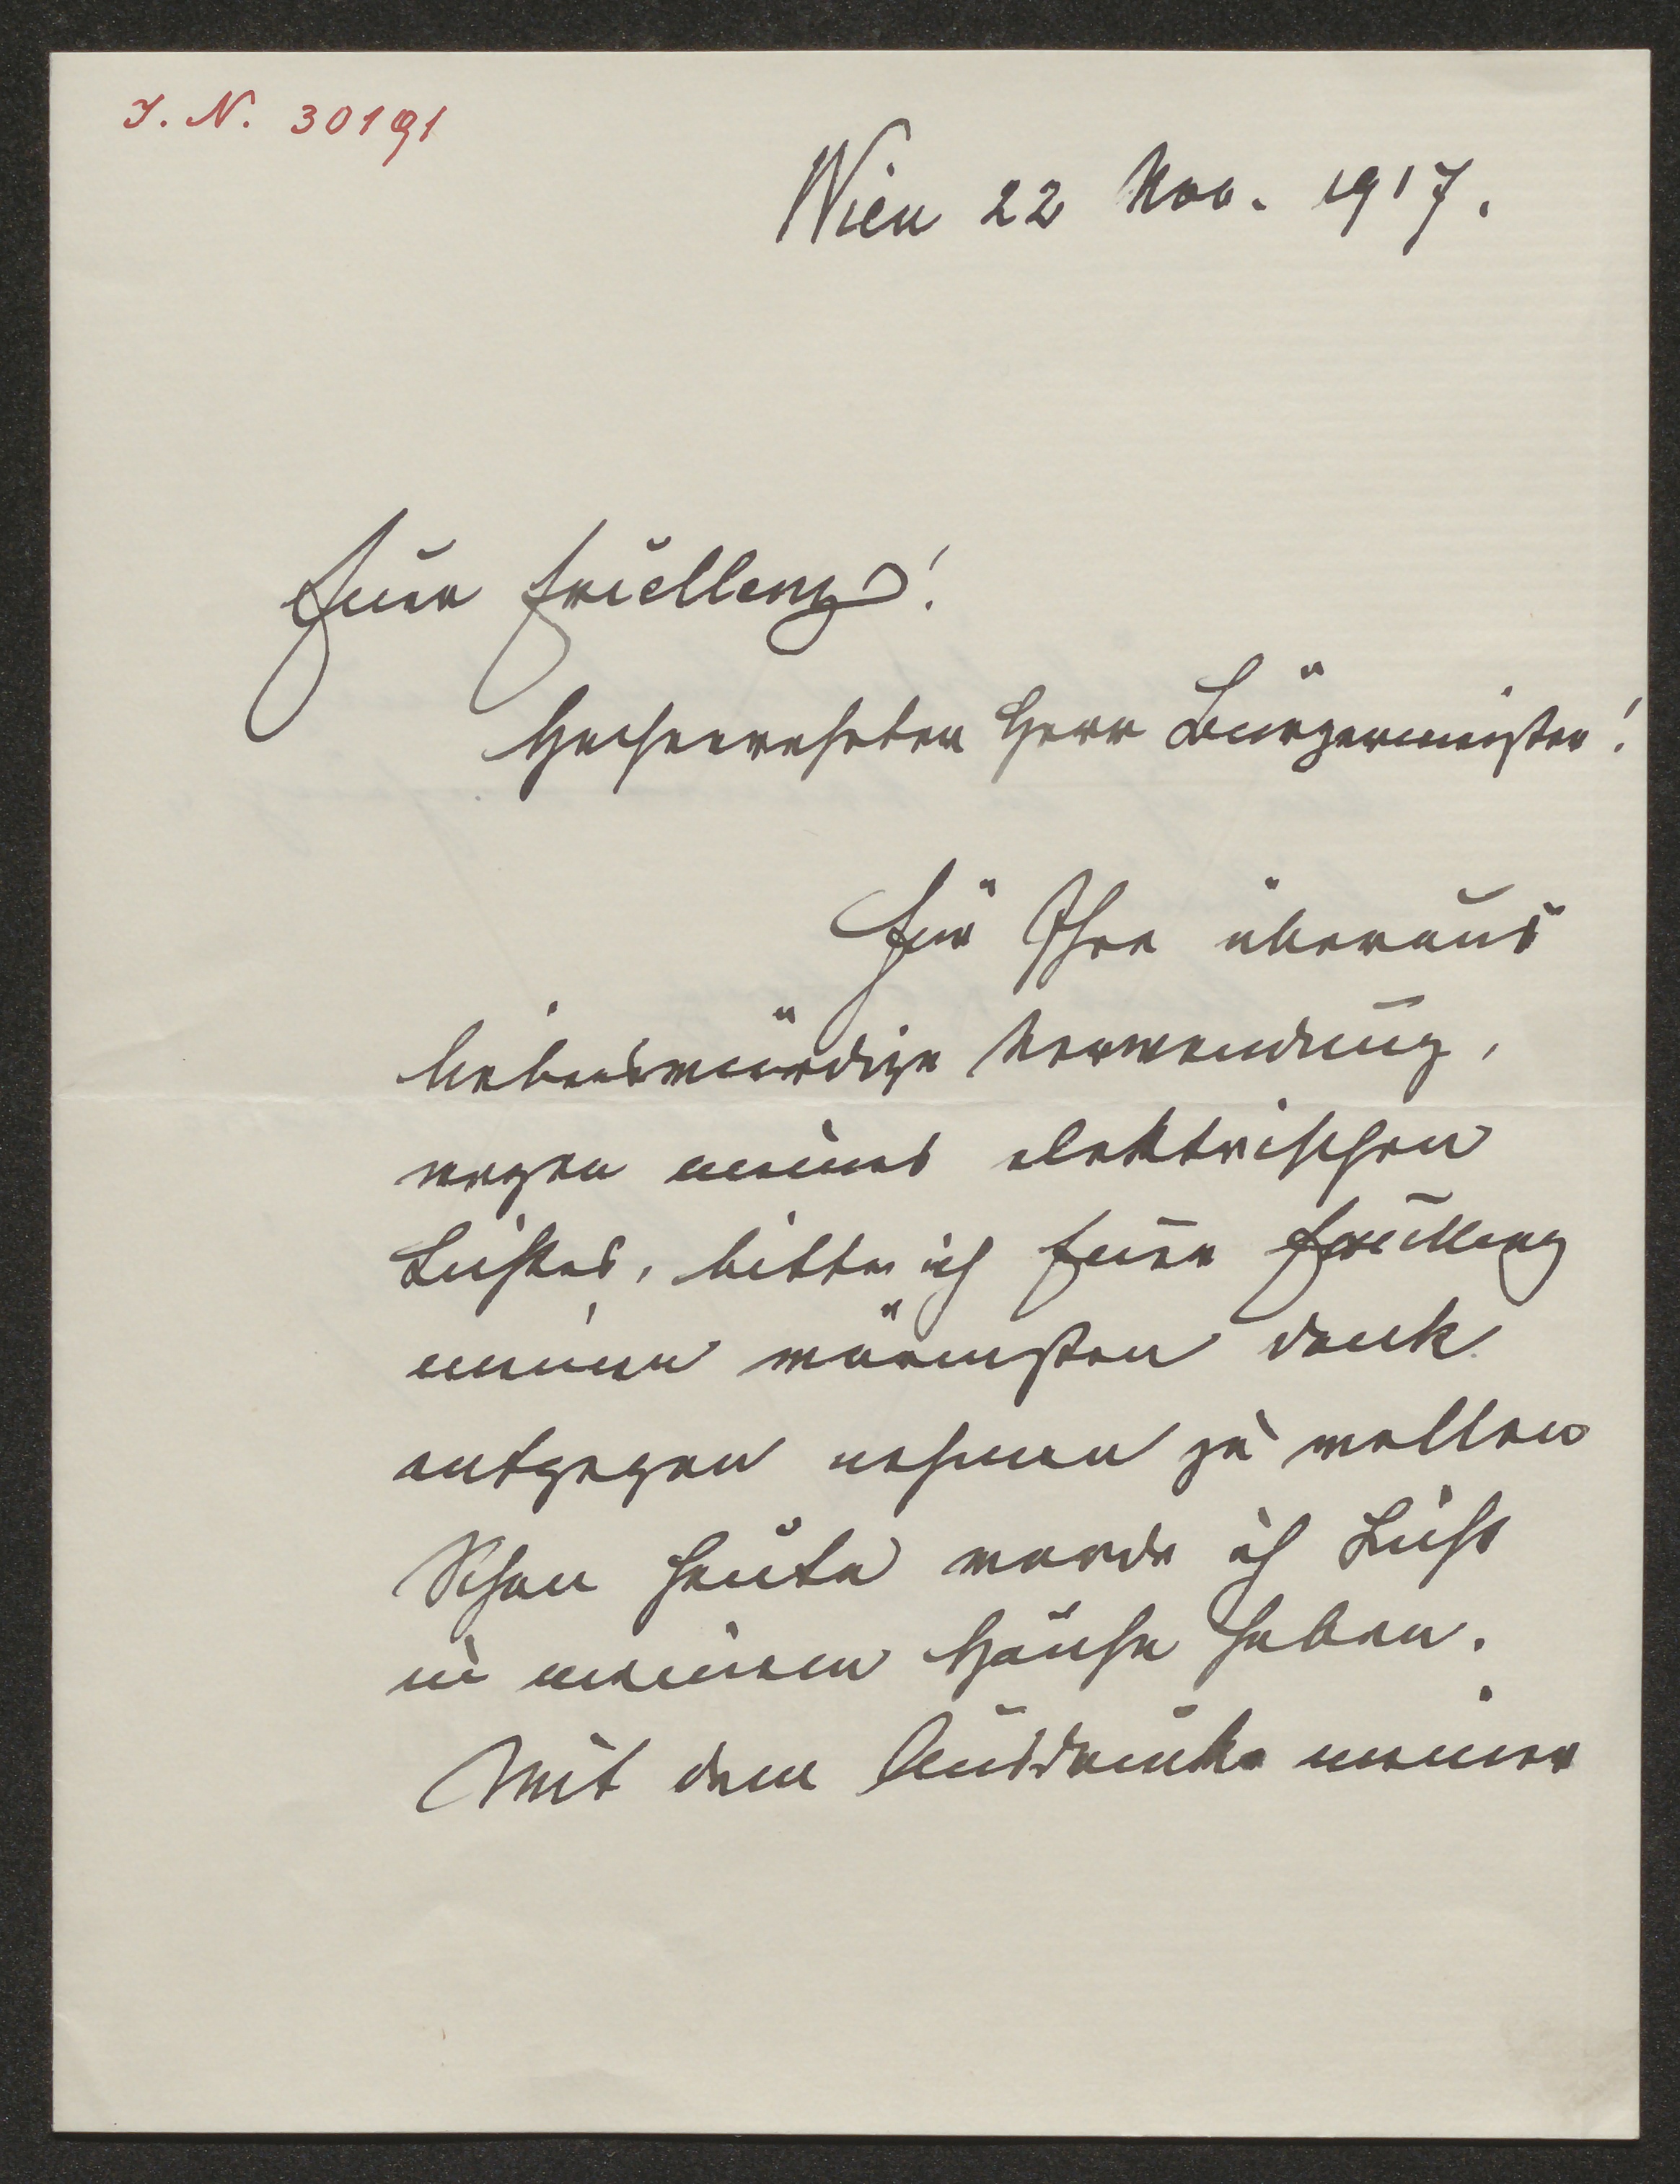 I. N. 30191
Wien 22 Nov. 1917.
Euer Excellenz!
Hochverehrter Herr Bürgermeister!
Für Ihre überaus
liebenswürdige Verwendung,
wegen meines elektrischen
Lichtes, bitte ich Euer Excellenz
meinen wärmsten Dank
entgegen nehmen zu wollen
Schon heute werde ich Licht
in meinem Hause haben.
Mit dem Ausdrucke meiner